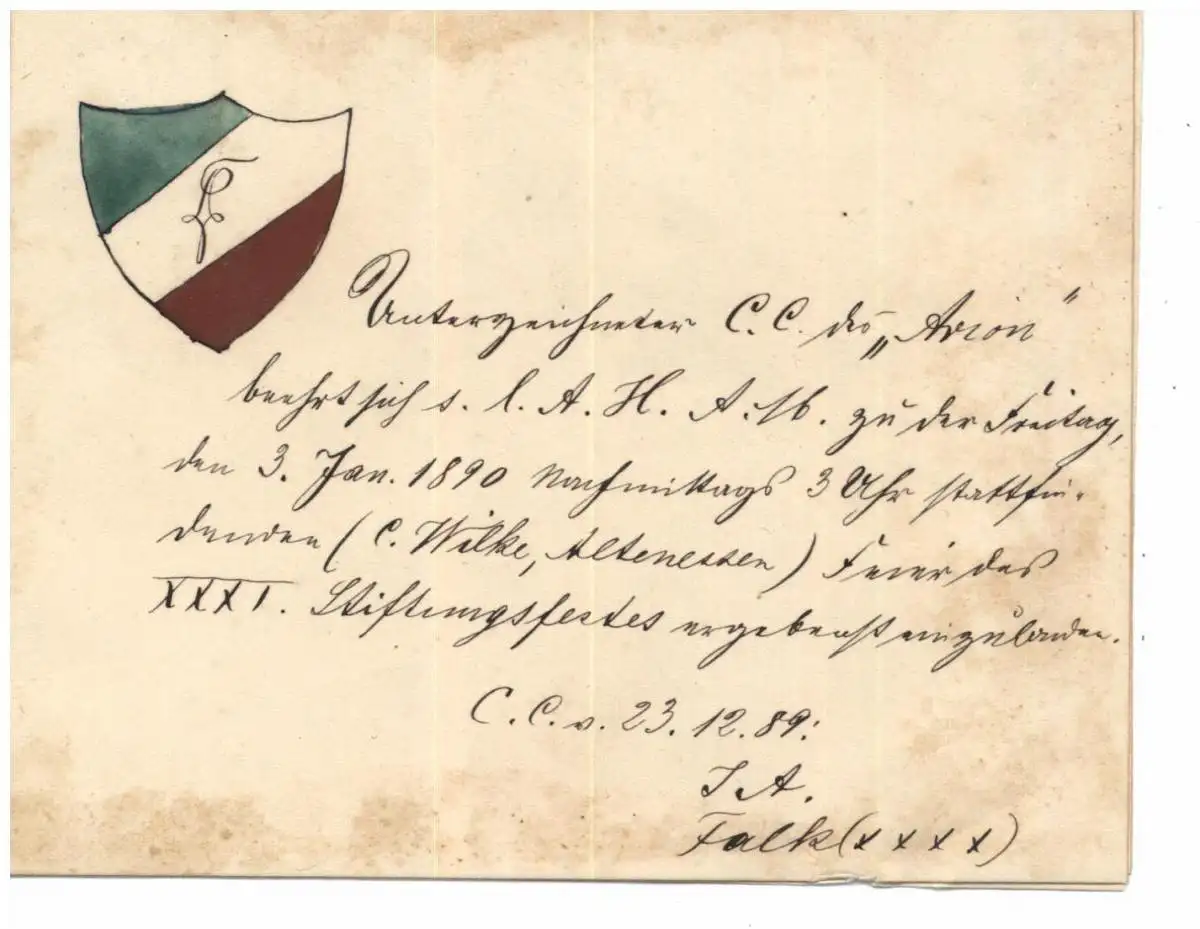 Unterzeichneter C. C. des „Arion"
beehrt sich s. l. A. H. A. zu der Freitag,
den 3. Jan. 1890 Nachmittags 3 Uhr stattfin-
denden (C. Wilke, Altenessen) Feier des
XXXI. Stiftungsfestes ergebenst einzuladen.
C. C. v. 23. 12. 89:
I. A.
Falk (x x x x)